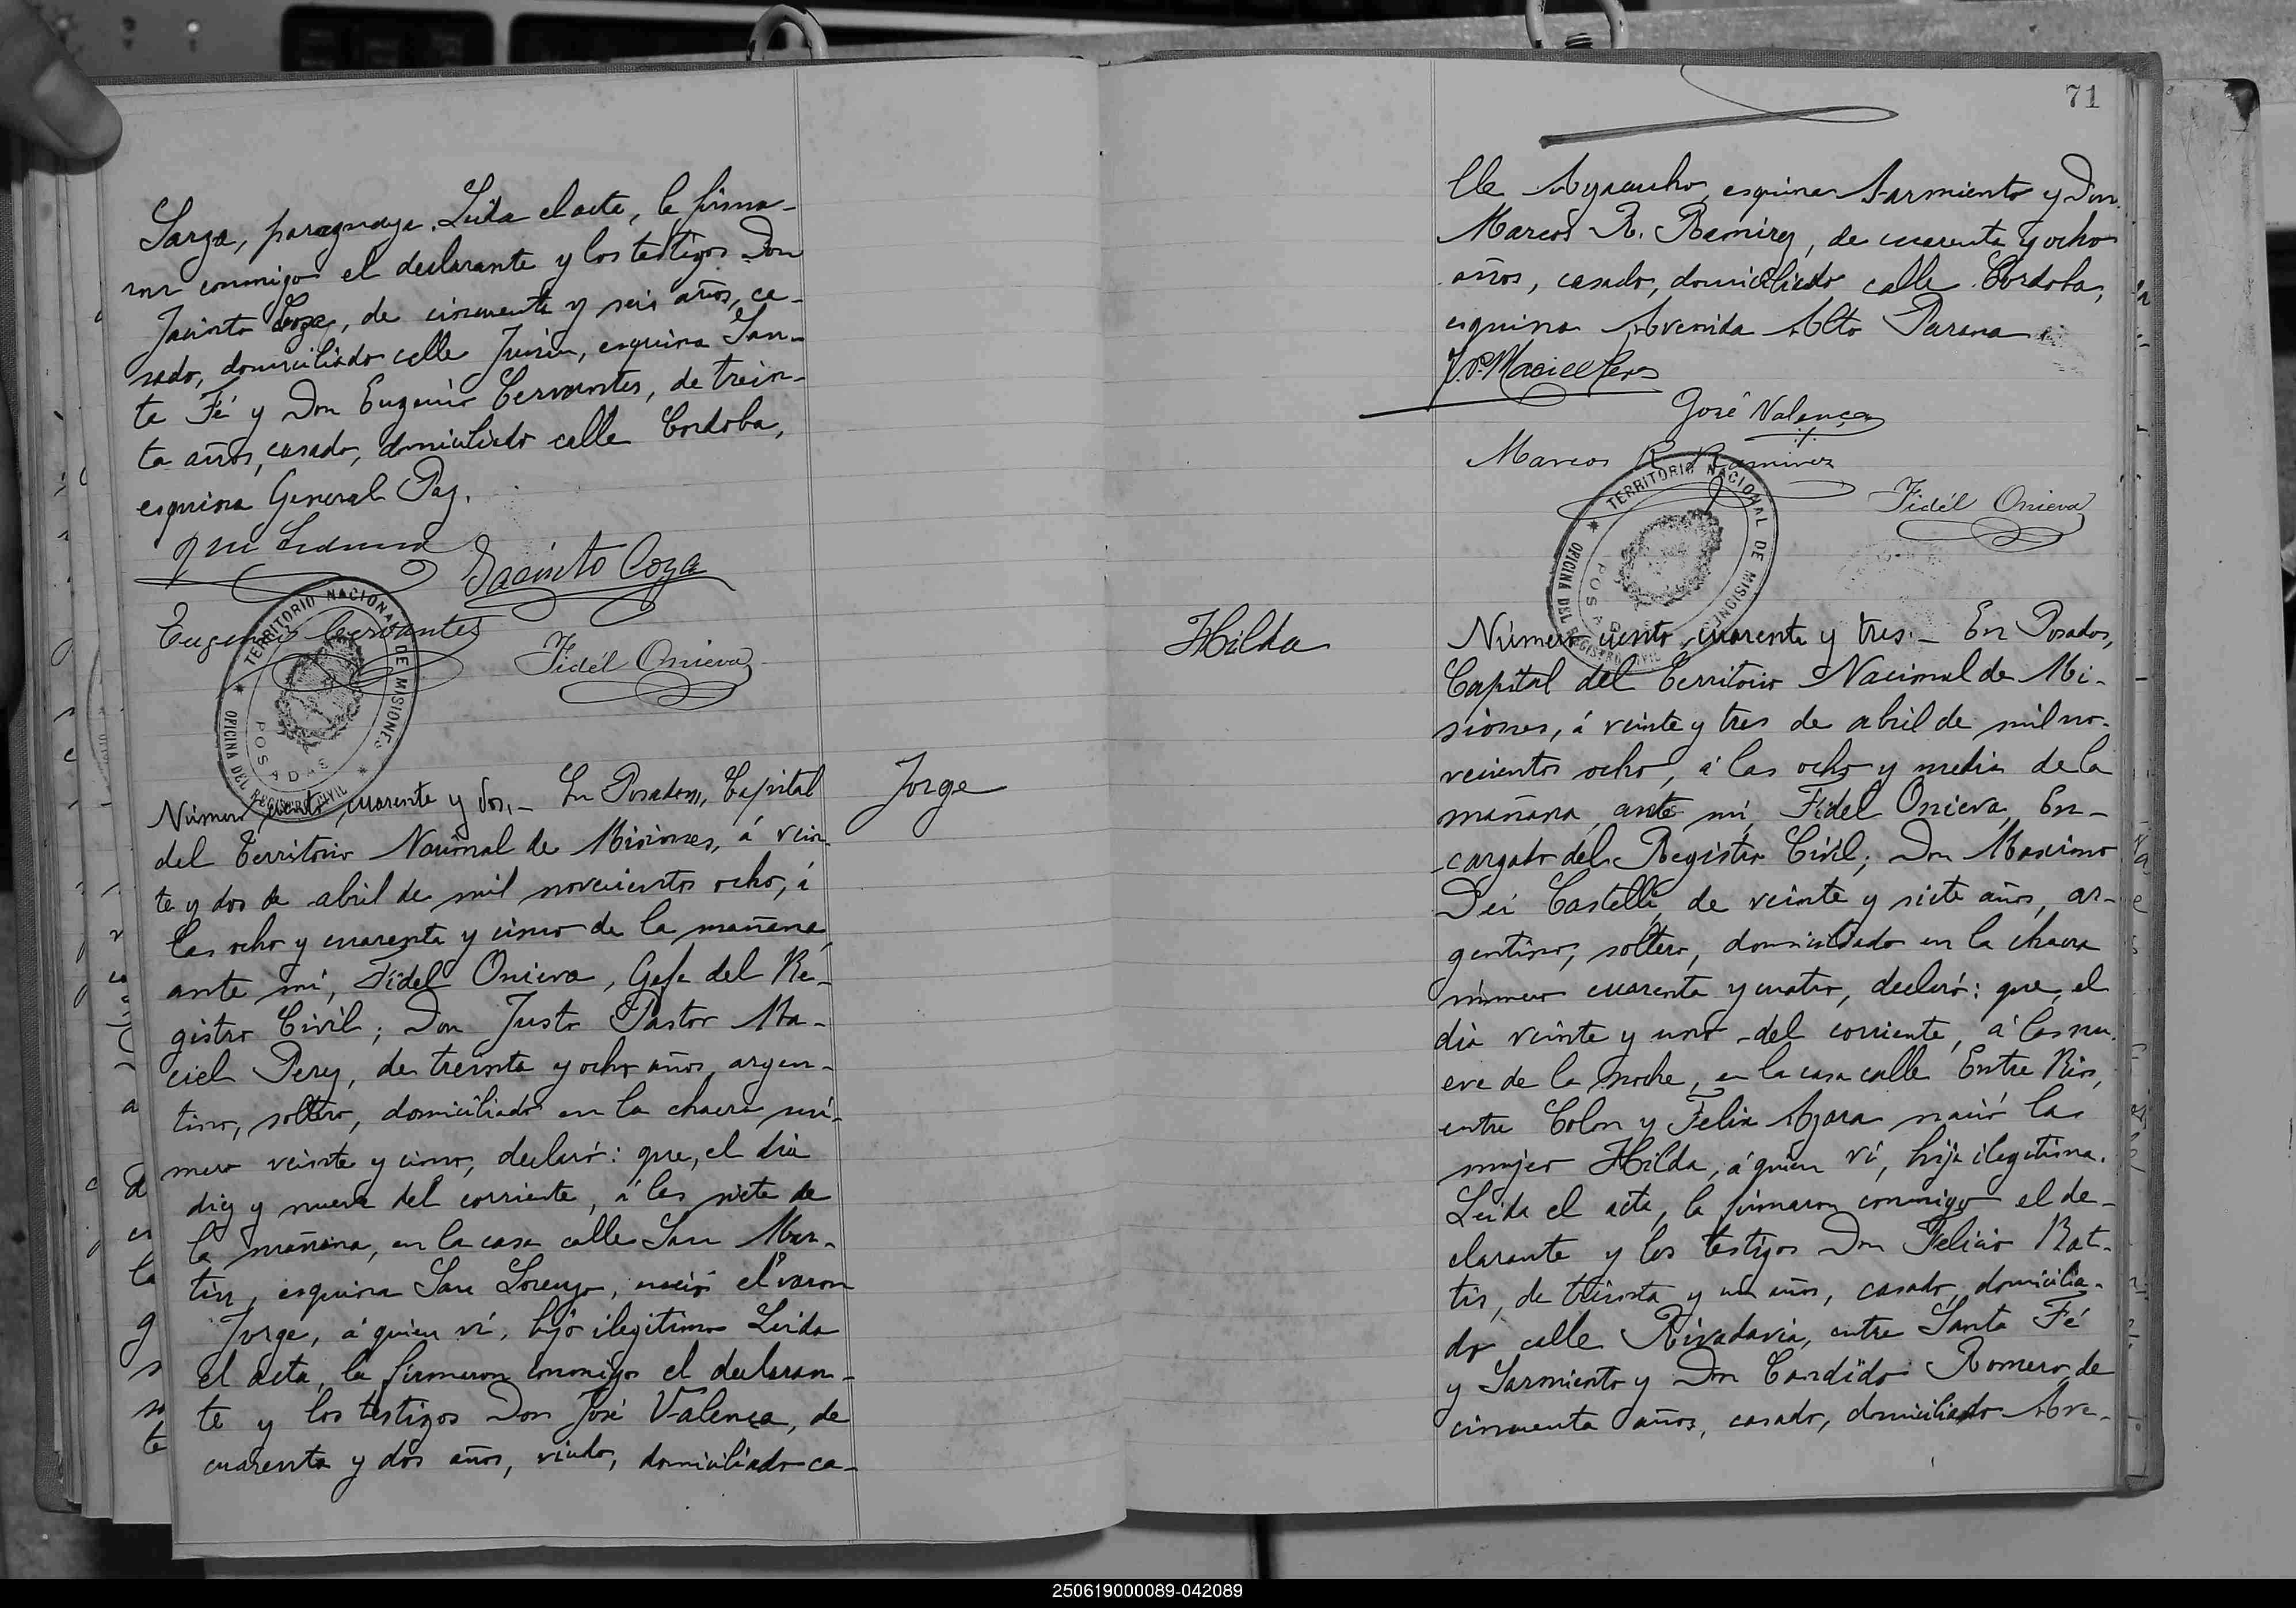 Sarza, paraguaya. Leida el acta, la firma-
ron conmigo el declarante y los testigos Don
Jacinto Coza, de cincuenta y seis años, ca-
sado, domiciliado calle Junin, esquina San-
ta Fé y Don Eugenio Cervantes, de trein-
ta años, casado, domiciliado calle Cordoba,
esquina General Paz.
Jacinto Coza
Eugenio Cervantes
Fidél Onieva
TERRITORIO NACIONAL DE MISIONES
OFICINA DEL REGISTRO CIVIL
POSADAS
Número ciento cuarenta y dos.- En Posadas, Capital
del Territorio Nacional de Misiones, á vein-
te y dos de abril de mil novecientos ocho, á
las ocho y cuarenta y cinco de la mañana,
ante mi, Fidel Onieva, Gefe del Re-
gistro Civil; Don Justo Pastor Ma-
ciel Perez, de treinta y ocho años, argen-
tino, soltero, domiciliado en la chacra nú-
mero veinte y cinco, declaró: que, el dia
diez y nueve del corriente, á las siete de
la mañana, en la casa calle San Mar-
tin, esquina San Lorenzo, nació el varon
Jorge, á quien vi, hijo ilegitimo. Leida
el acta, la firmaron conmigo el declaran-
te y los testigos Don José Valenca, de
cuarenta y dos años, viudo, domiciliado ca-
Jorge
71
lle Ayacucho, esquina Sarmiento y Don
Marcos R. Ramirez, de cuarenta y ocho
años, casado, domiciliado calle Cordoba,
esquina Avenida Alto Parana.
J. P. Maciel Perez
José Valença
Marcos R. Ramirez
Fidél Onieva
TERRITORIO NACIONAL DE MISIONES
OFICINA DEL REGISTRO CIVIL
POSADAS
Hilda
Número ciento cuarenta y tres.- En Posadas,
Capital del Territorio Nacional de Mi-
siones, á veinte y tres de abril de mil no-
vecientos ocho, á las ocho y media de la
mañana, ante mi, Fidel Onieva, En-
cargado del Registro Civil; Don Maximo
Dei Castelli, de veinte y siete años, ar-
gentino, soltero, domiciliado en la chacra
número cuarenta y cuatro, declaró: que, el
dia veinte y uno del corriente, á las nu-
eve de la noche, en la casa calle Entre Rios,
entre Colon y Felix Azara nació la
mujer Hilda, á quien vi, hija ilegitima.
Leida el acta, la firmaron conmigo el de-
clarante y los testigos Don Felicio Rat-
tis, de treinta y un años, casado, domicilia-
do calle Rivadavia, entre Santa Fé
y Sarmiento y Don Candido Romero, de
cincuenta años, casado, domiciliado Ave-
250619000089-042089